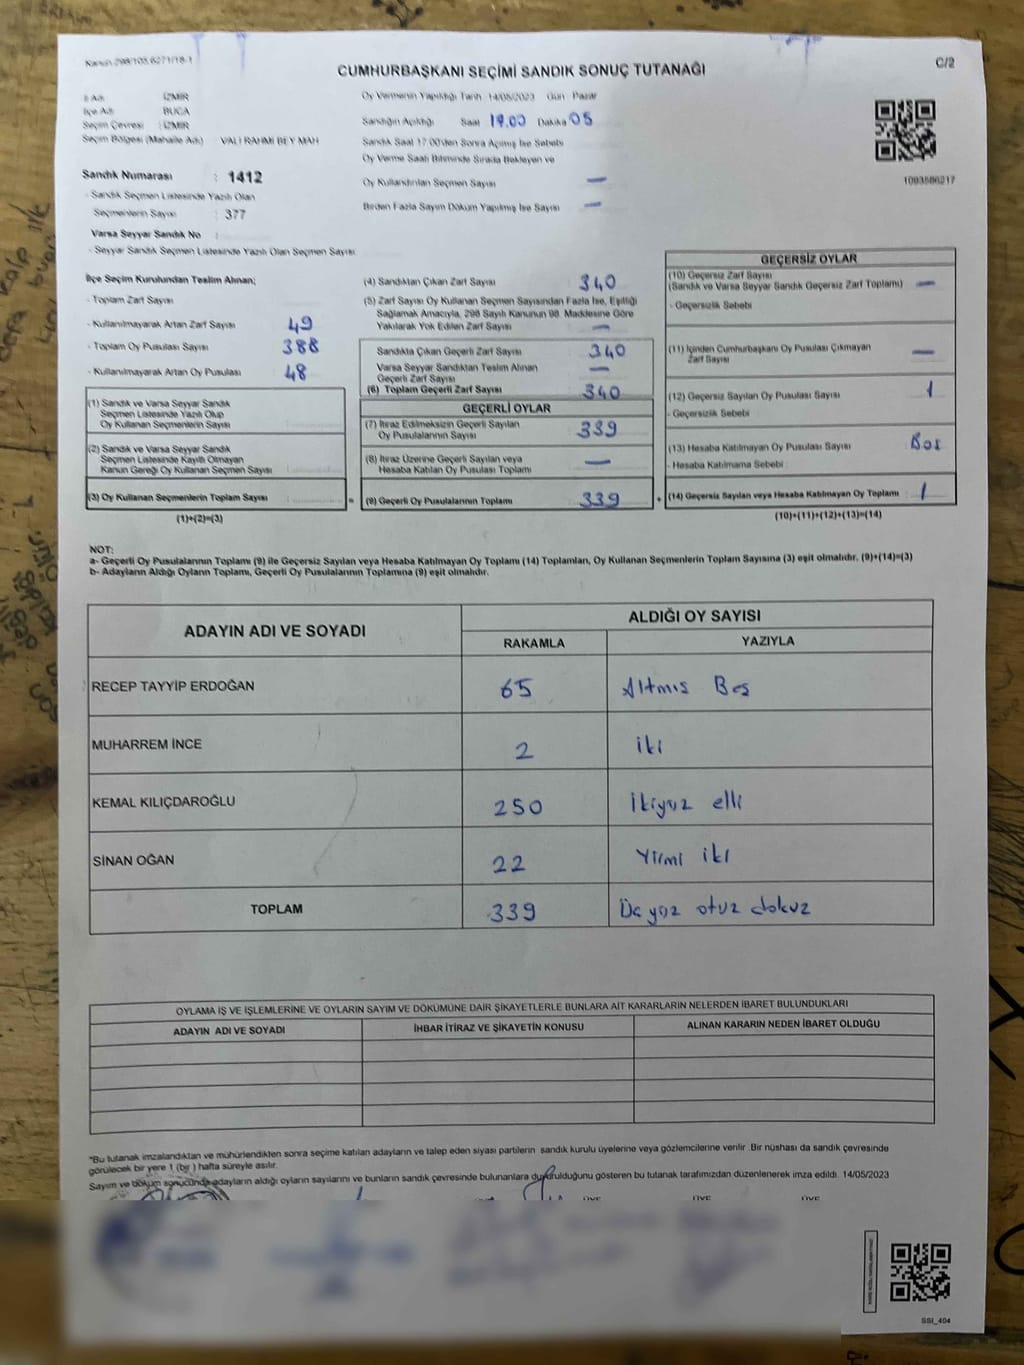 Kanun 298/105,6271/18-1
C/2
CUMHURBAŞKANI SEÇİMİ SANDIK SONUÇ TUTANAĞI
İl Adı : İZMİR
İlçe Adı : BUCA
Seçim Çevresi : İZMİR
Seçim Bölgesi (Mahalle Adı) : VALİ RAHMİ BEY MAH
Sandık Numarası : 1412
- Sandık Seçmen Listesinde Yazılı Olan
Seçmenlerin Sayısı : 377
Varsa Seyyar Sandık No :
- Seyyar Sandık Seçmen Listesinde Yazılı Olan Seçmen Sayısı
Oy Vermenin Yapıldığı Tarih 14/05/2023 Gün Pazar
Sandığın Açıldığı Saat 19.00 Dakika 05
Sandık Saat 17.00'den Sonra Açılmış İse Sebebi
Oy Verme Saati Bitiminde Sırada Bekleyen ve
Oy Kullandırılan Seçmen Sayısı —
Birden Fazla Sayım Döküm Yapılmış İse Sayısı —
1093586217
İlçe Seçim Kurulundan Teslim Alınan;
- Toplam Zarf Sayısı
- Kullanılmayarak Artan Zarf Sayısı 49
- Toplam Oy Pusulası Sayısı 388
- Kullanılmayarak Artan Oy Pusulası 48
(1) Sandık ve Varsa Seyyar Sandık
Seçmen Listesinde Yazılı Olup
Oy Kullanan Seçmenlerin Sayısı
(2) Sandık ve Varsa Seyyar Sandık
Seçmen Listesinde Kayıtlı Olmayan
Kanun Gereği Oy Kullanan Seçmen Sayısı
(3) Oy Kullanan Seçmenlerin Toplam Sayısı =
(1)+(2)=(3)
(4) Sandıktan Çıkan Zarf Sayısı 340
(5) Zarf Sayısı Oy Kullanan Seçmen Sayısından Fazla İse, Eşitliği
Sağlamak Amacıyla, 298 Sayılı Kanunun 98. Maddesine Göre
Yakılarak Yok Edilen Zarf Sayısı —
Sandıkta Çıkan Geçerli Zarf Sayısı 340
Varsa Seyyar Sandıktan Teslim Alınan
Geçerli Zarf Sayısı —
(6) Toplam Geçerli Zarf Sayısı 340
GEÇERLİ OYLAR
(7) İtiraz Edilmeksizin Geçerli Sayılan
Oy Pusulalarının Sayısı 339
(8) İtiraz Üzerine Geçerli Sayılan veya
Hesaba Katılan Oy Pusulası Toplamı —
(9) Geçerli Oy Pusulalarının Toplamı 339 +
GEÇERSİZ OYLAR
(10) Geçersiz Zarf Sayısı
(Sandık ve Varsa Seyyar Sandık Geçersiz Zarf Toplamı) —
- Geçersizlik Sebebi
(11) İçinden Cumhurbaşkanı Oy Pusulası Çıkmayan
Zarf Sayısı —
(12) Geçersiz Sayılan Oy Pusulası Sayısı 1
- Geçersizlik Sebebi
(13) Hesaba Katılmayan Oy Pusulası Sayısı Boş
- Hesaba Katılmama Sebebi
(14) Geçersiz Sayılan veya Hesaba Katılmayan Oy Toplamı 1
(10)+(11)+(12)+(13)=(14)
NOT:
a- Geçerli Oy Pusulalarının Toplamı (9) ile Geçersiz Sayılan veya Hesaba Katılmayan Oy Toplamı (14) Toplamları, Oy Kullanan Seçmenlerin Toplam Sayısına (3) eşit olmalıdır. (9)+(14)=(3)
b- Adayların Aldığı Oyların Toplamı, Geçerli Oy Pusulalarının Toplamına (9) eşit olmalıdır.
ADAYIN ADI VE SOYADI
ALDIĞI OY SAYISI
RAKAMLA YAZIYLA
RECEP TAYYİP ERDOĞAN 65 Altmış Beş
MUHARREM İNCE 2 iki
KEMAL KILIÇDAROĞLU 250 İkiyüz elli
SİNAN OĞAN 22 Yirmi iki
TOPLAM 339 Üç yüz otuz dokuz
OYLAMA İŞ VE İŞLEMLERİNE VE OYLARIN SAYIM VE DÖKÜMÜNE DAİR ŞİKAYETLERLE BUNLARA AİT KARARLARIN NELERDEN İBARET BULUNDUKLARI
ADAYIN ADI VE SOYADI İHBAR İTİRAZ VE ŞİKAYETİN KONUSU ALINAN KARARIN NEDEN İBARET OLDUĞU
*Bu tutanak imzalandıktan ve mühürlendikten sonra seçime katılan adayların ve talep eden siyasi partilerin sandık kurulu üyelerine veya gözlemcilerine verilir. Bir nüshası da sandık çevresinde
görülecek bir yere 1 (bir) hafta süreyle asılır.
Sayım ve döküm sonucunda adayların aldığı oyların sayılarını ve bunların sandık çevresinde bulunanlara duyurulduğunu gösteren bu tutanak tarafımızdan düzenlenerek imza edildi. 14/05/2023
ÜYE ÜYE ÜYE
SSI_404